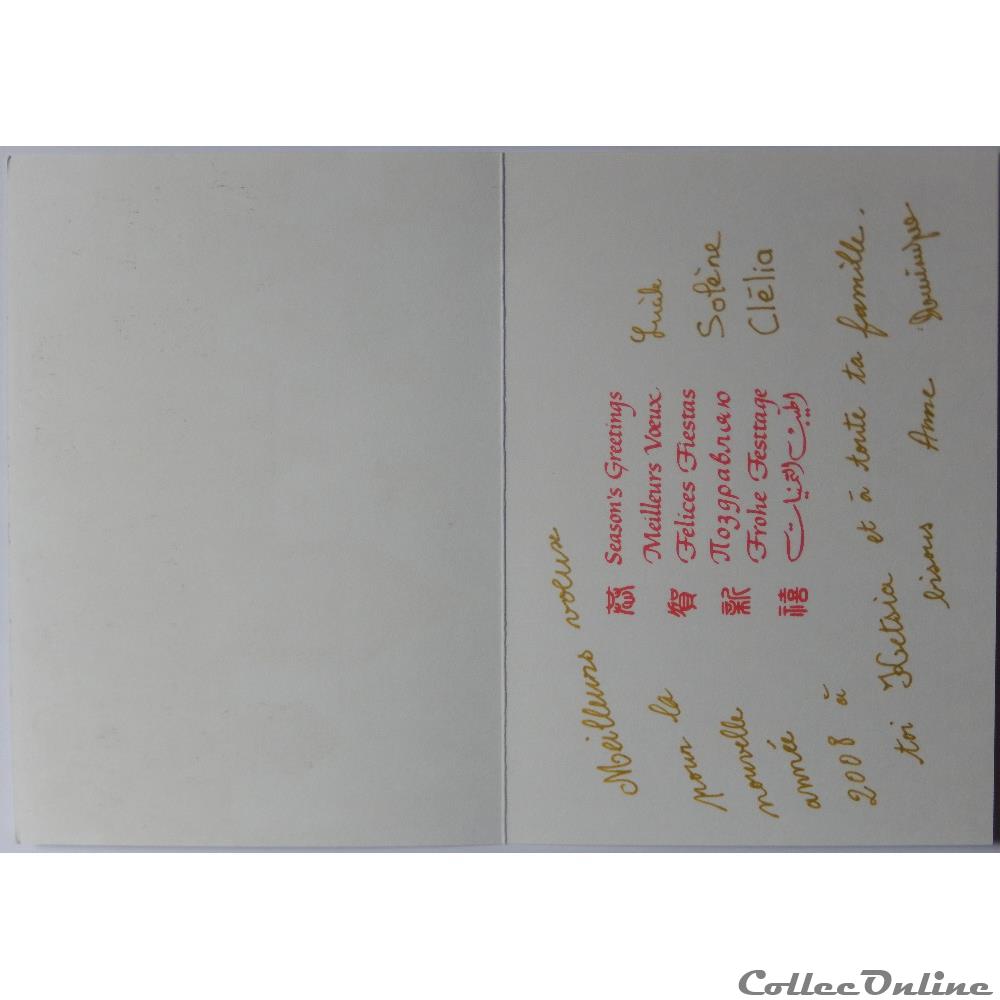 Meilleurs vœux
pour la
nouvelle
année
2008 à
toi Ketsia et à toute ta famille.
bisous Anne Dominique
Lucile
Solène
Clélia
Season's Greetings
Meilleurs Vœux
Felices Fiestas
Поздравляю
Frohe Festtage
اطيب التمنيات
恭
賀
新
禧
CollecOnline